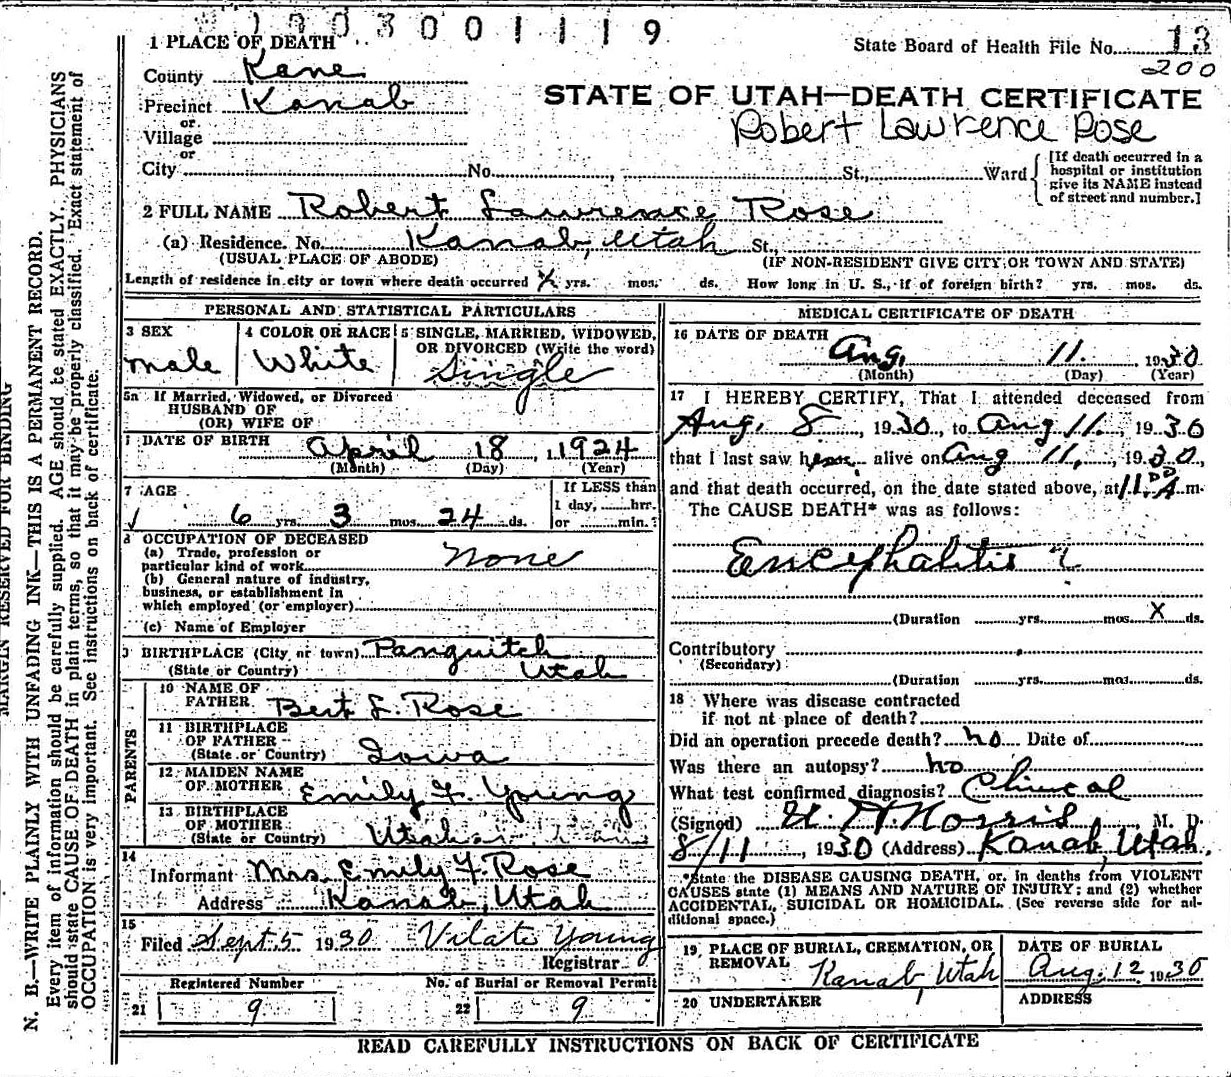 1003001119
1 PLACE OF DEATH
State Board of Health File No. 13
200
County Kane
Precinct Kanab
or
Village
or
City No. St., Ward
STATE OF UTAH—DEATH CERTIFICATE
Robert Lawrence Rose
[If death occurred in a
hospital or institution
give its NAME instead
of street and number.]
2 FULL NAME Robert Lawrence Rose
(a) Residence. No. Kanab, Utah St.,
(USUAL PLACE OF ABODE) (IF NON-RESIDENT GIVE CITY OR TOWN AND STATE)
Length of residence in city or town where death occurred X yrs. mos. ds. How long in U. S., if of foreign birth? yrs. mos. ds.
PERSONAL AND STATISTICAL PARTICULARS
3 SEX
male
4 COLOR OR RACE
White
5 SINGLE, MARRIED, WIDOWED,
OR DIVORCED (Write the word)
Single
5a If Married, Widowed, or Divorced
HUSBAND OF
(OR) WIFE OF
DATE OF BIRTH April 18, 1924
(Month) (Day) (Year)
7 AGE
6 yrs. 3 mos. 24 ds.
If LESS than
1 day, hrr.
or min.
8 OCCUPATION OF DECEASED
(a) Trade, profession or
particular kind of work none
(b) General nature of industry,
business, or establishment in
which employed (or employer)
(c) Name of Employer
BIRTHPLACE (City or town) Panguitch
(State or Country) Utah
PARENTS
10 NAME OF
FATHER Bert L. Rose
11 BIRTHPLACE
OF FATHER
(State or Country) Iowa
12 MAIDEN NAME
OF MOTHER Emily F. Young
13 BIRTHPLACE
OF MOTHER
(State or Country) Utah
14
Informant Mrs. Emily F. Rose
Address Kanab, Utah
15
Filed Sept 5 1930 Vilate Young
Registrar
Registered Number No. of Burial or Removal Permit
21 9 22 9
MEDICAL CERTIFICATE OF DEATH
16 DATE OF DEATH
Aug. 11. 1930
(Month) (Day) (Year)
17 I HEREBY CERTIFY, That I attended deceased from
Aug. 8, 1930, to Aug 11., 1930
that I last saw him alive on Aug 11, 1930,
and that death occurred, on the date stated above, at 11.00 A m.
The CAUSE DEATH* was as follows:
Encephalitis ?
(Duration yrs. mos. X ds.
Contributory
(Secondary)
(Duration yrs. mos. ds.
18 Where was disease contracted
if not at place of death?
Did an operation precede death? no Date of
Was there an autopsy? no
What test confirmed diagnosis? Clinical
(Signed) Norris, M. D.
8/11, 1930 (Address) Kanab, Utah.
*State the DISEASE CAUSING DEATH, or, in deaths from VIOLENT
CAUSES state (1) MEANS AND NATURE OF INJURY; and (2) whether
ACCIDENTAL, SUICIDAL OR HOMICIDAL. (See reverse side for ad-
ditional space.)
19 PLACE OF BURIAL, CREMATION, OR
REMOVAL Kanab, Utah
DATE OF BURIAL
Aug. 12 1930
20 UNDERTAKER
ADDRESS
READ CAREFULLY INSTRUCTIONS ON BACK OF CERTIFICATE
MARGIN RESERVED FOR BINDING
N. B.—WRITE PLAINLY WITH UNFADING INK—THIS IS A PERMANENT RECORD.
Every item of information should be carefully supplied. AGE should be stated EXACTLY. PHYSICIANS
should state CAUSE OF DEATH in plain terms, so that it may be properly classified. Exact statement of
OCCUPATION is very important. See instructions on back of certificate.